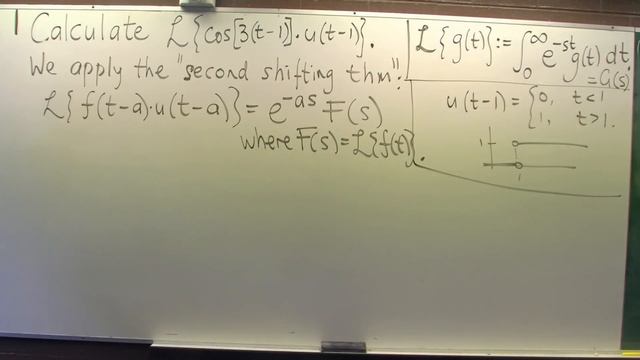 Calculate ℒ{cos[3(t-1)]·u(t-1)}.
We apply the "second shifting thm":
ℒ{f(t-a)·u(t-a)} = e^{-as} F(s)
where F(s) = ℒ{f(t)}.
ℒ{g(t)} := ∫_0^∞ e^{-st} g(t) dt.
= G(s)
u(t-1) = {0, t<1
1, t>1.
1
1